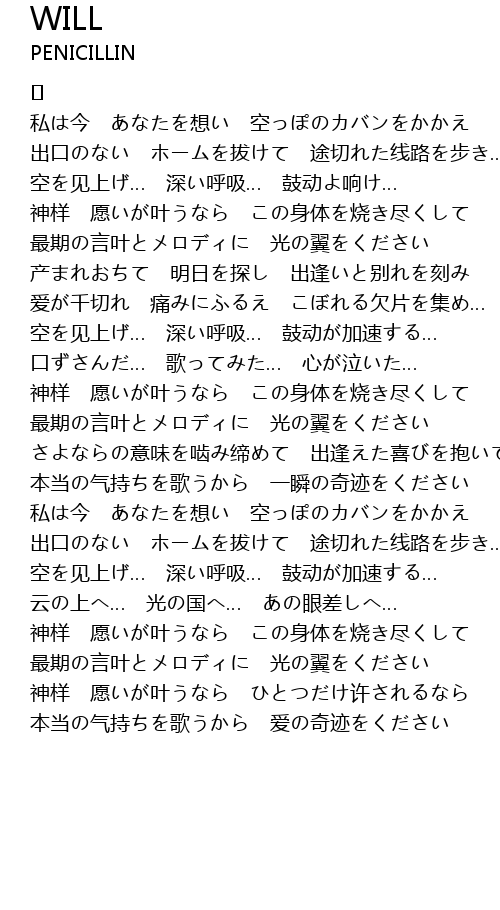 WILL
PENICILLIN
私は今　あなたを想い　空っぽのカバンをかかえ
出口のない　ホームを抜けて　途切れた线路を歩き...
空を见上げ...　深い呼吸...　鼓动よ响け...
神样　愿いが叶うなら　この身体を烧き尽くして
最期の言叶とメロディに　光の翼をください
产まれおちて　明日を探し　出逢いと别れを刻み
爱が千切れ　痛みにふるえ　こぼれる欠片を集め...
空を见上げ...　深い呼吸...　鼓动が加速する...
口ずさんだ...　歌ってみた...　心が泣いた...
神样　愿いが叶うなら　この身体を烧き尽くして
最期の言叶とメロディに　光の翼をください
さよならの意味を啮み缔めて　出逢えた喜びを抱いて
本当の气持ちを歌うから　一瞬の奇迹をください
私は今　あなたを想い　空っぽのカバンをかかえ
出口のない　ホームを抜けて　途切れた线路を歩き...
空を见上げ...　深い呼吸...　鼓动が加速する...
云の上へ...　光の国へ...　あの眼差しへ...
神样　愿いが叶うなら　この身体を烧き尽くして
最期の言叶とメロディに　光の翼をください
神样　愿いが叶うなら　ひとつだけ许されるなら
本当の气持ちを歌うから　爱の奇迹をください